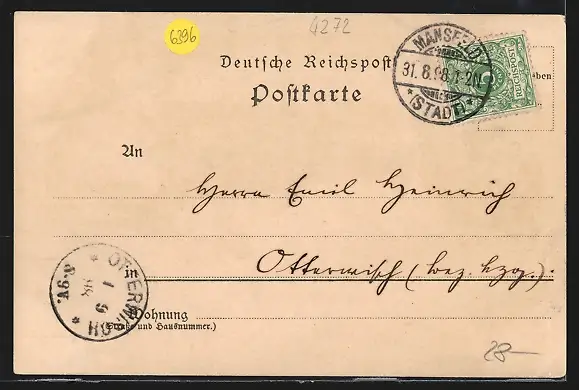 6396
4272
MANSFELD
31.8.98.1-2N.
* (STADT) *
REICHSPOST
Deutsche Reichspost
Postkarte
ben
An
Herrn Emil Heinrich
in
Otterwisch (bez. Lpzg.).
OTTERWISCH
1 9
98
8-9V.
Wohnung
(Straße und Hausnummer.)
28-